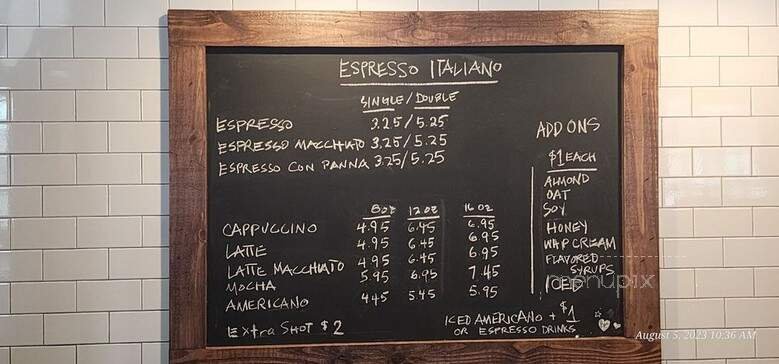 ESPRESSO ITALIANO
SINGLE / DOUBLE
ESPRESSO 3.25 / 5.25
ESPRESSO MACCHIATO 3.25 / 5.25
ESPRESSO CON PANNA 3.25 / 5.25
8oz 12oz 16oz
CAPPUCCINO 4.95 6.45 6.95
LATTE 4.95 6.45 6.95
LATTE MACCHIATO 4.95 6.45 6.95
MOCHA 5.95 6.95 7.45
AMERICANO 4.45 5.45 5.95
Extra SHOT $2
ADD ONS
$1 EACH
ALMOND
OAT
SOY
HONEY
WHIP CREAM
FLAVORED
SYRUPS
ICED
ICED AMERICANO + $1
OR ESPRESSO DRINKS
menupix
August 5, 2023 10:36 AM